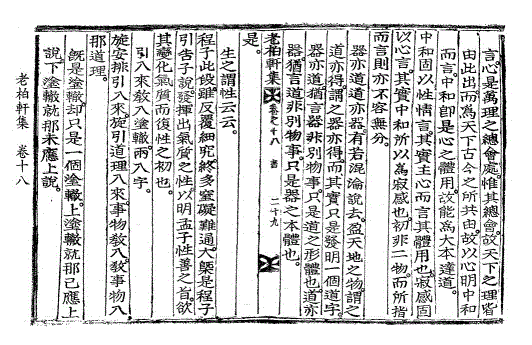 言心是萬理之總會處惟其總會故天下之理皆
由此出而爲天下古今之所共由故以心明中和
而言中和卽是心之體用故能爲大本達道
中和固以性情言其實主心而言其體用也寂感固
以心言其實中和所以爲寂感也初非二物而所指
而言則亦不容無分
器亦道道亦器有若混淪說去盈天地之物謂之
道亦得謂之器亦得而其實只是發明一個道字
器亦道猶言器非別物事只是道之形體也道亦
器猶言道非別物事只是器之本體也
老柏軒集 卷之十八 書 二十九
是
生之謂性云云
程子此段雖反覆細究終多窒礙難通大槩是程子
引告子說發揮出氣質之性以明孟子性善之旨欲
其變化氣質而復性之初也
引入來敎入塗轍兩入字
旋安排引入來旋引道理入來事物敎入敎事物入
那道理
旣是塗轍却只是一個塗轍上塗轍就那已應上
說下塗轍就那未應上說
老柏軒集 卷十八